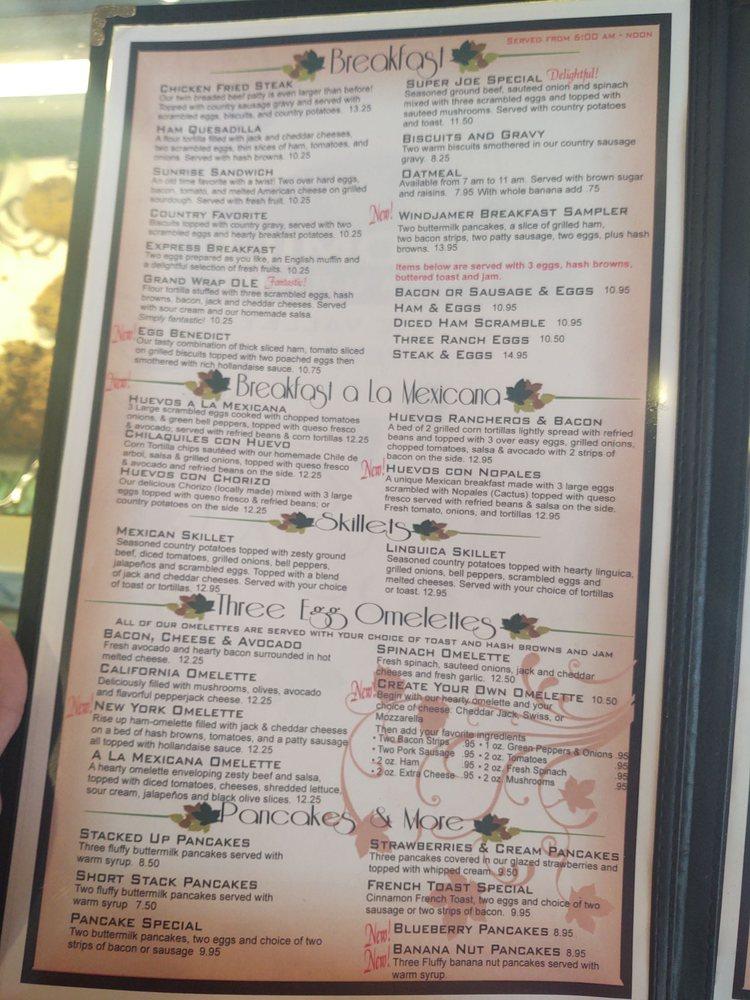 Served from 6:00 am - noon
Breakfast
Chicken Fried Steak
Our twin breaded beef patty is even larger than before!
Topped with country sausage gravy and served with
scrambled eggs, biscuits, and country potatoes. 13.25
Ham Quesadilla
A flour tortilla filled with jack and cheddar cheeses,
two scrambled eggs, thin slices of ham, tomatoes, and
onions. Served with hash browns. 10.25
Sunrise Sandwich
An old time favorite with a twist! Two over hard eggs,
bacon, tomato, and melted American cheese on grilled
sourdough. Served with fresh fruit. 10.25
Country Favorite
Biscuits topped with country gravy, served with two
scrambled eggs and hearty breakfast potatoes. 10.25
Express Breakfast
Two eggs prepared as you like, an English muffin and
a delightful selection of fresh fruits. 10.25
Grand Wrap Ole Fantastic!
Flour tortilla stuffed with three scrambled eggs, hash
browns, bacon, jack and cheddar cheeses. Served
with sour cream and our homemade salsa.
Simply fantastic! 10.25
New! Egg Benedict
Our tasty combination of thick sliced ham, tomato sliced
on grilled biscuits topped with two poached eggs then
smothered with rich hollandaise sauce. 10.75
Super Joe Special Delightful!
Seasoned ground beef, sauteed onion and spinach
mixed with three scrambled eggs and topped with
sauteed mushrooms. Served with country potatoes
and toast. 11.50
Biscuits and Gravy
Two warm biscuits smothered in our country sausage
gravy. 8.25
Oatmeal
Available from 7 am to 11 am. Served with brown sugar
and raisins. 7.95 With whole banana add .75
New! Windjamer Breakfast Sampler
Two buttermilk pancakes, a slice of grilled ham,
two bacon strips, two patty sausage, two eggs, plus hash
browns. 13.95
Items below are served with 3 eggs, hash browns,
buttered toast and jam.
Bacon or Sausage & Eggs 10.95
Ham & Eggs 10.95
Diced Ham Scramble 10.95
Three Ranch Eggs 10.50
Steak & Eggs 14.95
New! Breakfast a La Mexicana
Huevos a La Mexicana
3 Large scrambled eggs cooked with chopped tomatoes
onions, & green bell peppers, topped with queso fresco
& avocado; served with refried beans & corn tortillas 12.25
Chilaquiles con Huevo
Corn Tortilla chips sautéed with our homemade Chile de
arbol, salsa & grilled onions, topped with queso fresco
& avocado and refried beans on the side. 12.25
Huevos con Chorizo
Our delicious Chorizo (locally made) mixed with 3 large
eggs topped with queso fresco & refried beans; or
country potatoes on the side 12.25
Huevos Rancheros & Bacon
A bed of 2 grilled corn tortillas lightly spread with refried
beans and topped with 3 over easy eggs, grilled onions,
chopped tomatoes, salsa & avocado with 2 strips of
bacon on the side. 12.95
New! Huevos con Nopales
A unique Mexican breakfast made with 3 large eggs
scrambled with Nopales (Cactus) topped with queso
fresco served with refried beans & salsa on the side.
Fresh tomato, onions, and tortillas 12.95
Skillets
Mexican Skillet
Seasoned country potatoes topped with zesty ground
beef, diced tomatoes, grilled onions, bell peppers,
jalapeños and scrambled eggs. Topped with a blend
of jack and cheddar cheeses. Served with your choice
of toast or tortillas. 12.95
Linguica Skillet
Seasoned country potatoes topped with hearty linguica,
grilled onions, bell peppers, scrambled eggs and
melted cheeses. Served with your choice of tortillas
or toast. 12.95
Three Egg Omelettes
All of our omelettes are served with your choice of toast and hash browns and jam
Bacon, Cheese & Avocado
Fresh avocado and hearty bacon surrounded in hot
melted cheese. 12.25
California Omelette
Deliciously filled with mushrooms, olives, avocado
and flavorful pepperjack cheese. 12.25
New! New York Omelette
Rise up ham-omelette filled with jack & cheddar cheeses
on a bed of hash browns, tomatoes, and a patty sausage
all topped with hollandaise sauce. 12.25
A La Mexicana Omelette
A hearty omelette enveloping zesty beef and salsa,
topped with diced tomatoes, cheeses, shredded lettuce,
sour cream, jalapeños and black olive slices. 12.25
Spinach Omelette
Fresh spinach, sauteed onions, jack and cheddar
cheeses and fresh garlic. 12.50
New! Create Your Own Omelette 10.50
Begin with our hearty omelette and your
choice of cheese: Cheddar Jack, Swiss, or
Mozzarella
Then add your favorite ingredients
• Two Bacon Strips .95 • 1 oz. Green Peppers & Onions .95
• Two Pork Sausage .95 • 2 oz. Tomatoes .95
• 2 oz. Ham .95 • 2 oz. Fresh Spinach .95
• 2 oz. Extra Cheese .95 • 2 oz. Mushrooms .95
Pancakes & More
Stacked Up Pancakes
Three fluffy buttermilk pancakes served with
warm syrup. 8.50
Short Stack Pancakes
Two fluffy buttermilk pancakes served with
warm syrup 7.50
Pancake Special
Two buttermilk pancakes, two eggs and choice of two
strips of bacon or sausage 9.95
Strawberries & Cream Pancakes
Three pancakes covered in our glazed strawberries and
topped with whipped cream. 9.50
French Toast Special
Cinnamon French Toast, two eggs and choice of two
sausage or two strips of bacon. 9.95
New! Blueberry Pancakes 8.95
New! Banana Nut Pancakes 8.95
Three Fluffy banana nut pancakes served with
warm syrup.